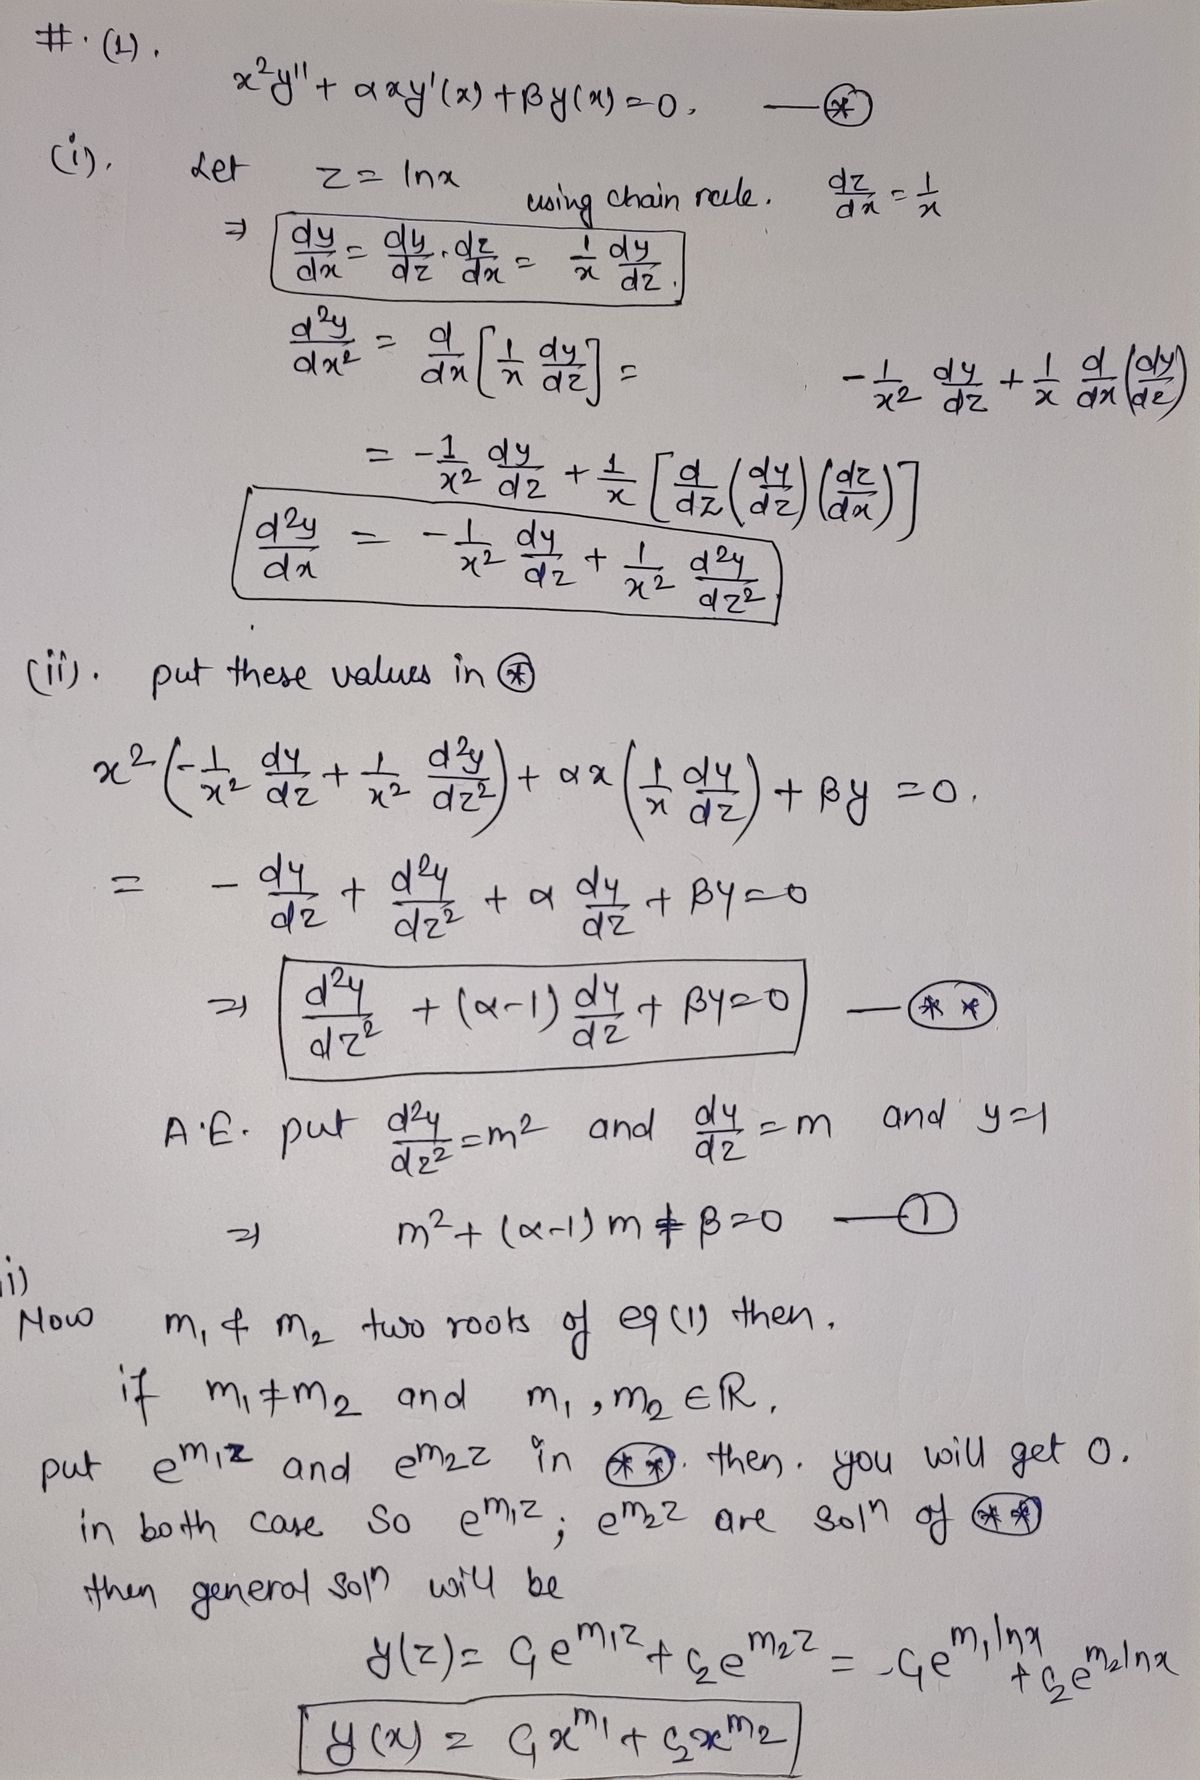 #. (1).
x²y'' + αxy'(x) + βy(x) = 0. — (*)
(i). Let z = lnx using chain rule. dz/dx = 1/x
⇒ dy/dx = dy/dz · dz/dx = 1/x dy/dz.
d²y/dx² = d/dx [1/x dy/dz] = -1/x² dy/dz + 1/x d/dx (dy/dz)
= -1/x² dy/dz + 1/x [d/dz (dy/dz) (dz/dx)]
d²y/dx = -1/x² dy/dz + 1/x² d²y/dz²
(ii). put these values in (*)
x² (-1/x² dy/dz + 1/x² d²y/dz²) + αx (1/x dy/dz) + βy = 0.
= - dy/dz + d²y/dz² + α dy/dz + βy = 0
⇒ d²y/dz² + (α-1) dy/dz + βy = 0 — (**)
A.E. put d²y/dz² = m² and dy/dz = m and y = 1
⇒ m² + (α-1) m + β = 0 — (1)
ii)
Now m₁ & m₂ two roots of eq (1) then.
if m₁ ≠ m₂ and m₁, m₂ ∈ ℝ.
put e^{m₁z} and e^{m₂z} in (**). then. you will get 0.
in both case so e^{m₁z}; e^{m₂z} are solⁿ of (**)
then general solⁿ will be
y(z) = C₁e^{m₁z} + C₂e^{m₂z} = C₁e^{m₁lnx} + C₂e^{m₂lnx}
y(x) = C₁x^{m₁} + C₂x^{m₂}